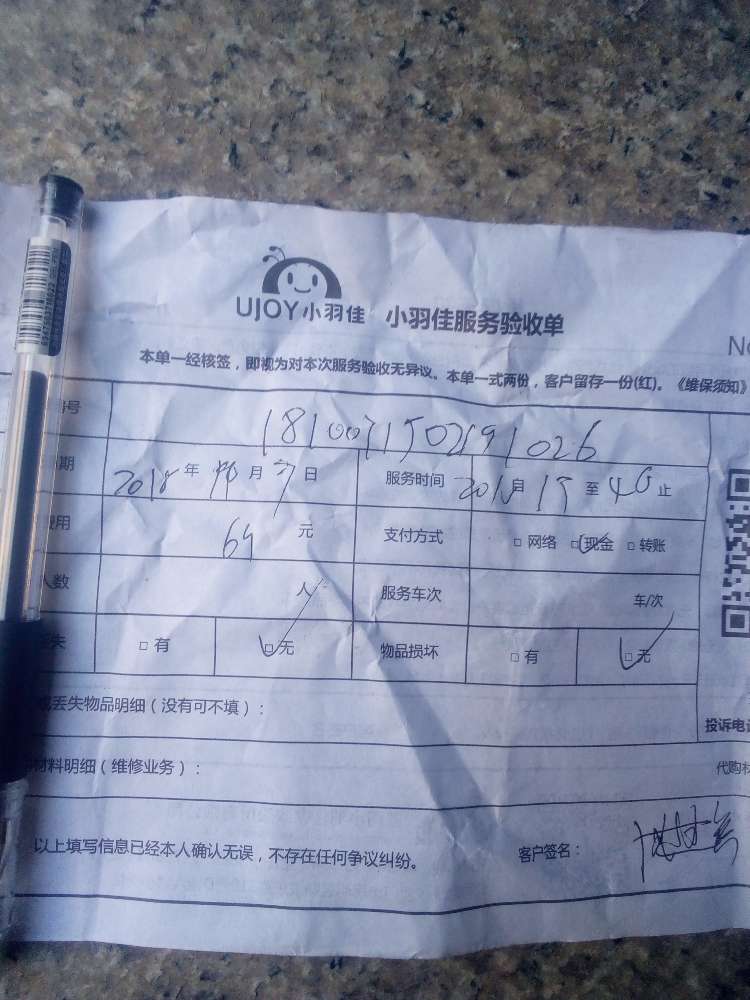 UJOY小羽佳 小羽佳服务验收单
No
本单一经核签，即视为对本次服务验收无异议。本单一式两份，客户留存一份(红)。《维保须知》
号 181007150291026
期 2018 年 10 月 7 日 服务时间 自 15 至 40 止
费用 64 元 支付方式 □ 网络 □ 现金 □ 转账
人数 人 服务车次 车/次
失 □ 有 □ 无 物品损坏 □ 有 □ 无
或丢失物品明细（没有可不填）： 投诉电话
材料明细（维修业务）： 代购材
以上填写信息已经本人确认无误，不存在任何争议纠纷。 客户签名：